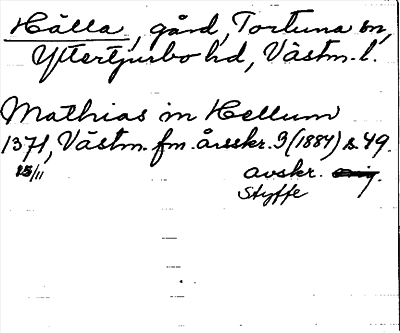 Hälla, gård, Tortuna sn,
Yttertjurbo hd, Västm. l.
Mathias in Hellum
1371, Västm. fm. årsskr. 3 (1884) s. 49.
25/11 avskr. orig.
Styffe